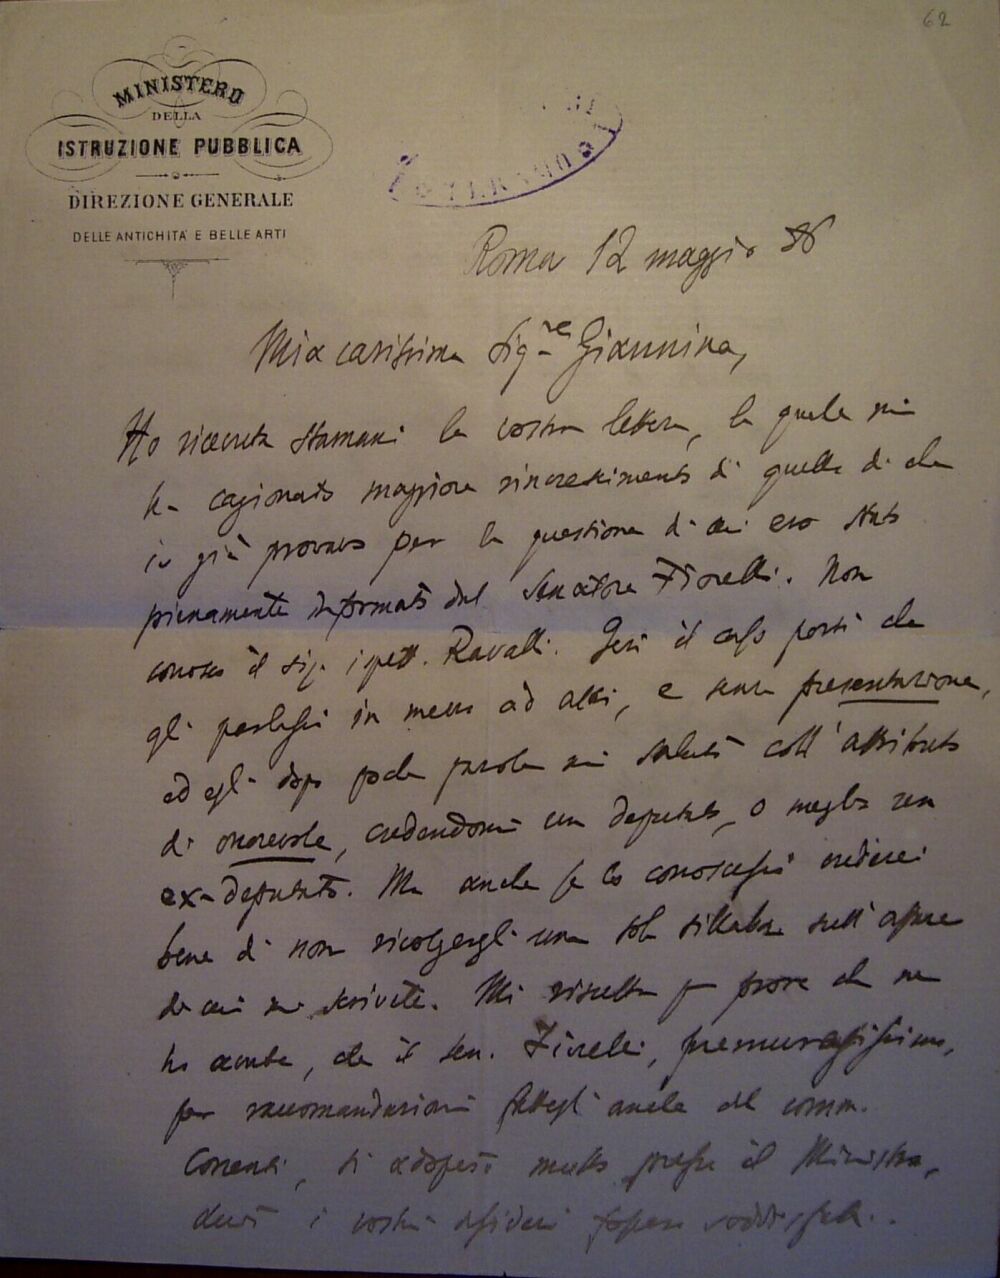 62
MINISTERO
DELLA
ISTRUZIONE PUBBLICA
DIREZIONE GENERALE
DELLE ANTICHITA' E BELLE ARTI
Roma 12 maggio 86
Mia carissima Sig.re Giannina,
Ho ricevuta stamani la vostra lettera, la quale mi
ha cagionato maggiore rincrescimento di quello di che
io già provavo per la questione di cui ero stato
pienamente informato dal Senatore Fiorelli. Non
conosco il sig. ispett. Ravalli. Ieri il caso portò che
gli parlassi in mezzo ad altri, e senza presentazione,
ed egli dopo poche parole mi salutò coll'attributo
di onorevole, credendomi un deputato, o meglio un
ex-deputato. Ma anche se lo conoscessi crederei
bene di non rivolgergli una sola sillaba sull'affare
di cui mi scrivete. Mi risulta per prove che ne
ho avute, che il sen. Fiorelli, premurosissimo,
per raccomandazioni fattegli anche dal comm.
Correnti, si adoperò molto presso il Ministro,
i vostri desideri fossero soddisfatti.